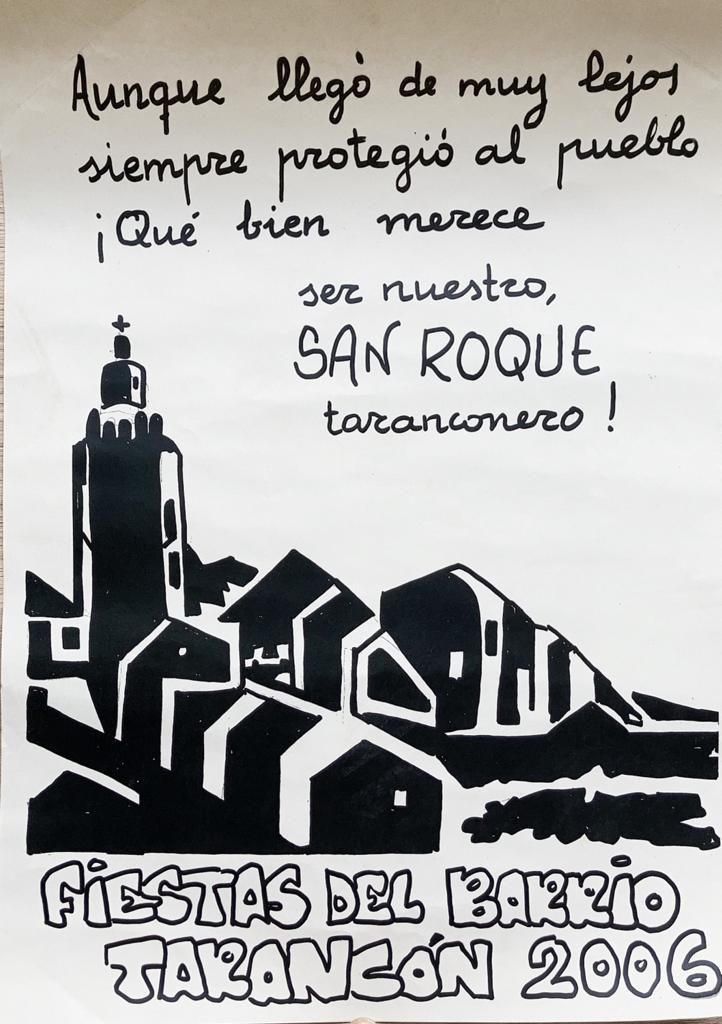 Aunque llegó de muy lejos
siempre protegió al pueblo
¡Qué bien merece
ser nuestro,
SAN ROQUE
taranconero!
FiESTAS DEL BARRiO
TARANCÓN 2006